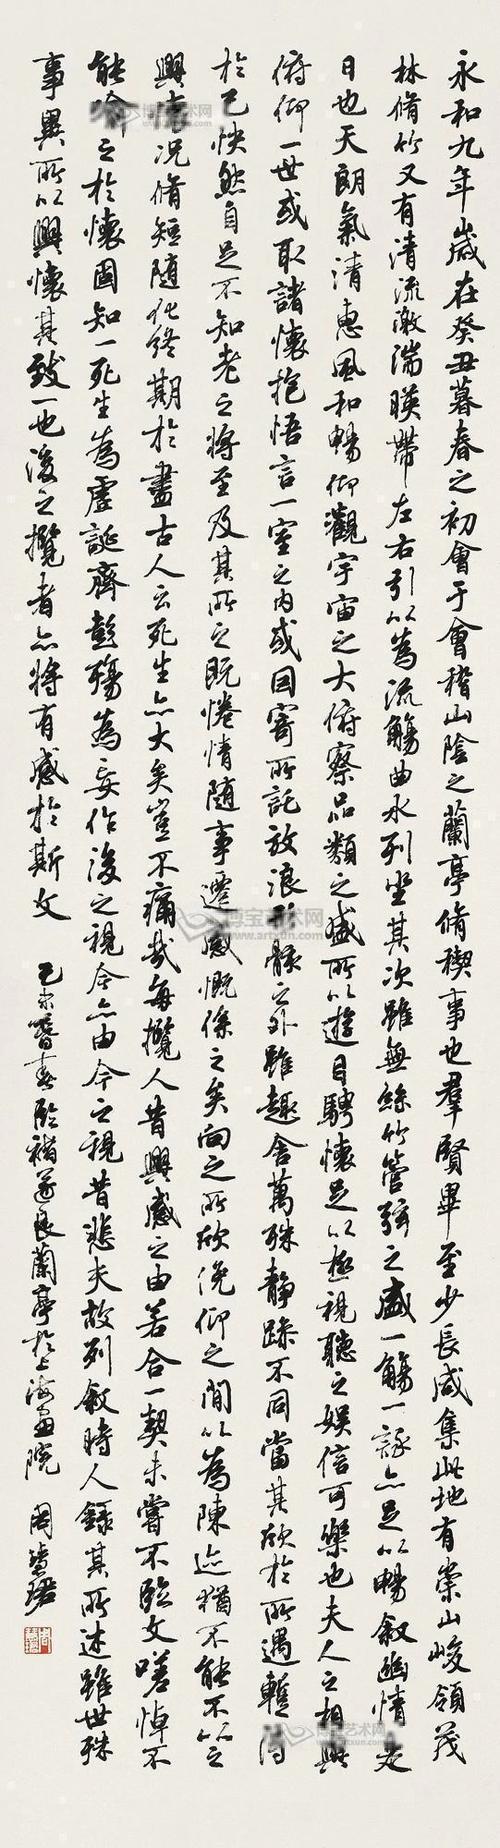 永和九年歲在癸丑暮春之初會于會稽山陰之蘭亭脩禊事也羣賢畢至少長咸集此地有崇山峻領茂
林脩竹又有清流激湍暎帶左右引以為流觴曲水列坐其次雖無絲竹管弦之盛一觴一詠亦足以暢叙幽情是
日也天朗氣清惠風和暢仰觀宇宙之大俯察品類之盛所以遊目騁懷足以極視聽之娛信可樂也夫人之相與
俯仰一世或取諸懷抱悟言一室之内或因寄所託放浪形骸之外雖趣舍萬殊静躁不同當其欣於所遇暫得
於己怏然自足不知老之將至及其所之既惓情随事遷感慨係之矣向之所欣俛仰之間以為陳迹猶不能不以之
興懷况脩短随化終期於盡古人云死生亦大矣豈不痛哉每攬人昔興感之由若合一契未嘗不臨文嗟悼不
能喻之於懷固知一死生為虛誕齊彭殤為妄作後之視今亦由今之視昔悲夫故列叙時人録其所述雖世殊
事異所以興懷其致一也後之攬者亦將有感於斯文 己未暮春臨褚遂良蘭亭於上海畫院 周慧珺
博宝艺术网
www.artxun.com